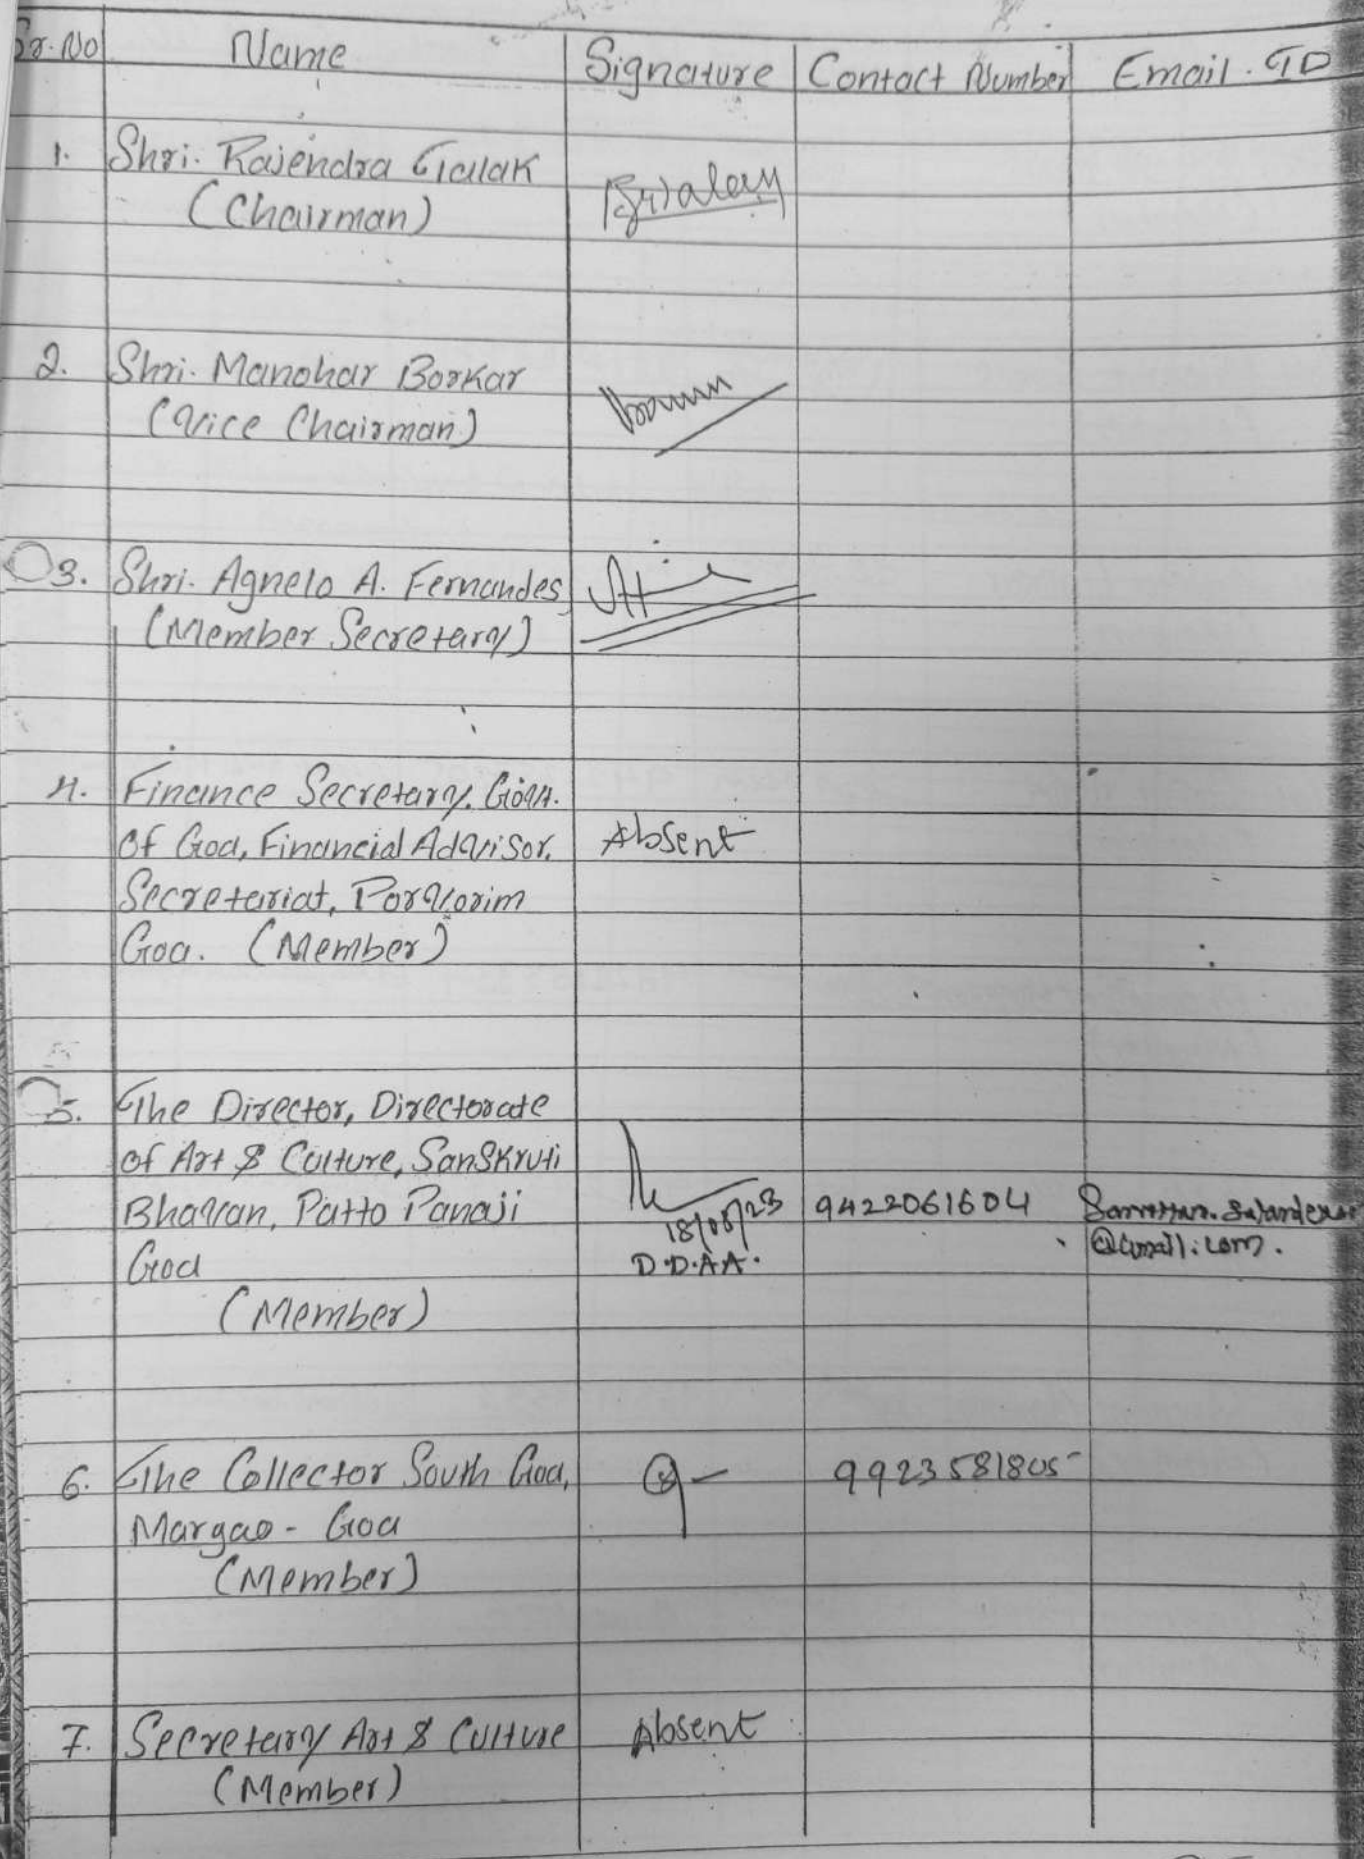 Sr. No Name Signature Contact Number Email. ID
1. Shri. Rajendra Talak
(Chairman)
2. Shri. Manohar Borkar
(Vice Chairman)
3. Shri. Agnelo A. Fernandes
(Member Secretary)
4. Finance Secretary. Govt.
of Goa, Financial Advisor, Absent
Secretariat, Porvorim
Goa. (Member)
5. The Director, Directorate
of Art & Culture, Sanskruti
Bhavan, Patto Panaji 18/08/23 9422061604
Goa D.D.A.A. @Gmail.com.
(Member)
6. The Collector South Goa, 9923581805
Margao - Goa
(Member)
7. Secretary Art & Culture Absent
(Member)